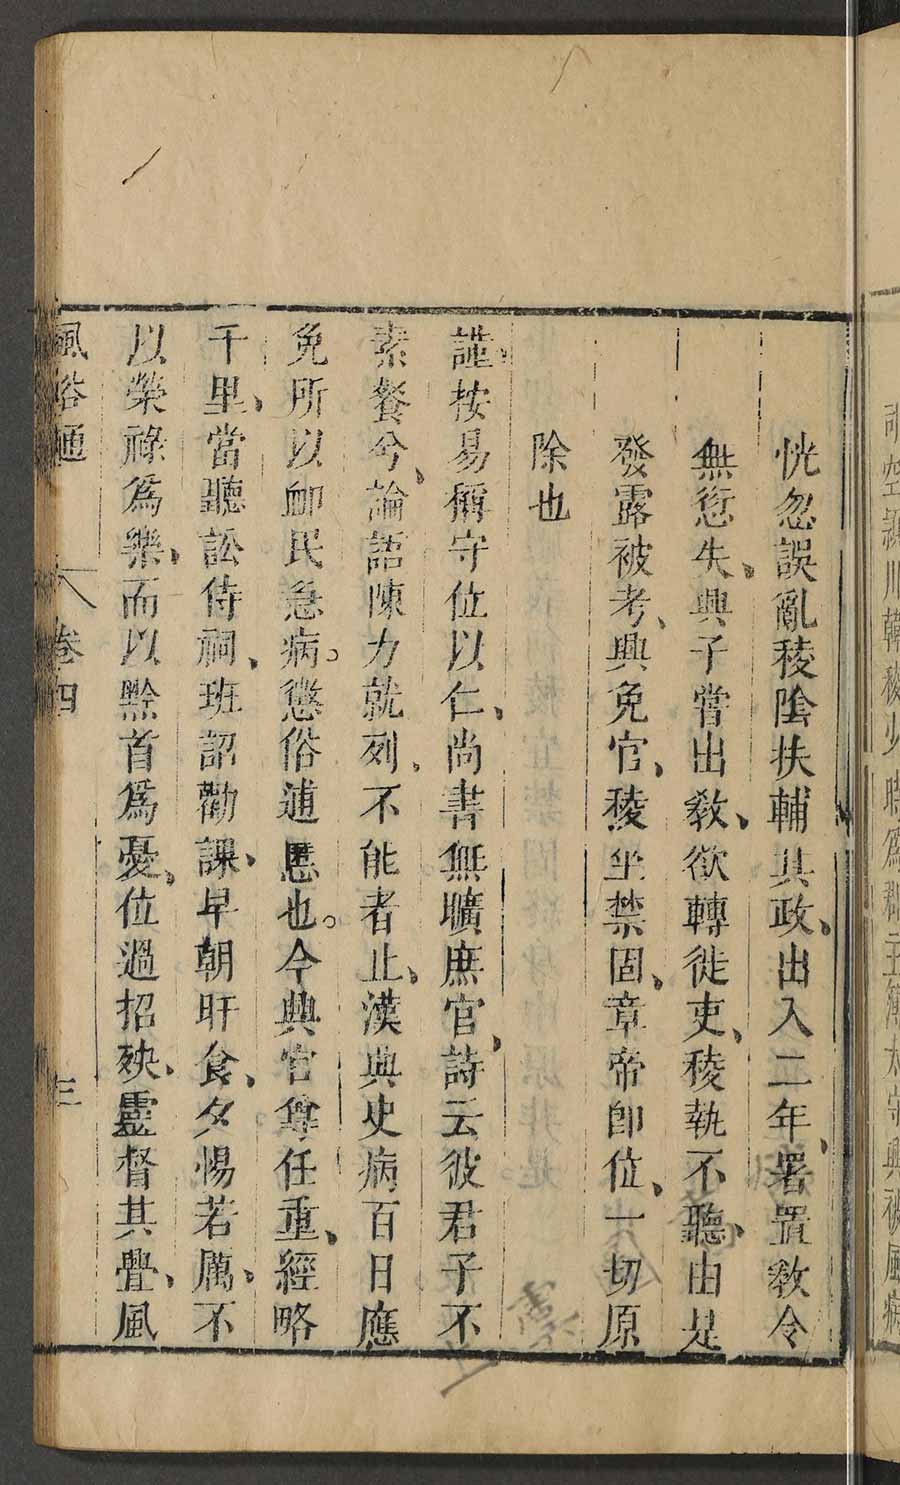 恍忽誤亂稜陰扶輔其政、出入二年、署置教令
無愆失、興子嘗出教、欲轉徙吏、稜執不聽、由是
發露被考、興免官、稜坐禁固、章帝即位、一切原
除也
謹按易稱守位以仁、尚書無曠庶官、詩云彼君子不
素餐兮、論語陳力就列、不能者止、漢典吏病百日應
免所以卹民急病。懲俗逋慝也。今興官尊任重、經略
千里、當聽訟侍祠、班詔勸課、早朝旰食、夕惕若厲、不
以榮祿爲樂、而以黔首爲憂、位過招殃、靈督其舋、風
風俗通 卷四 三